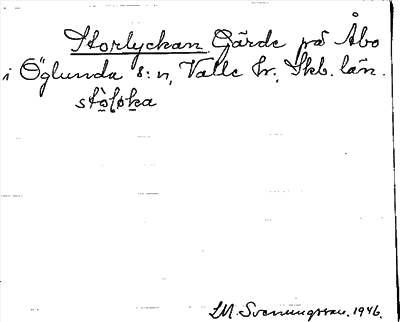 Storlyckan Gärde på Åbo
i Öglunda s:n, Valle hr, Skb. län.
LM Svenungsson. 1946.